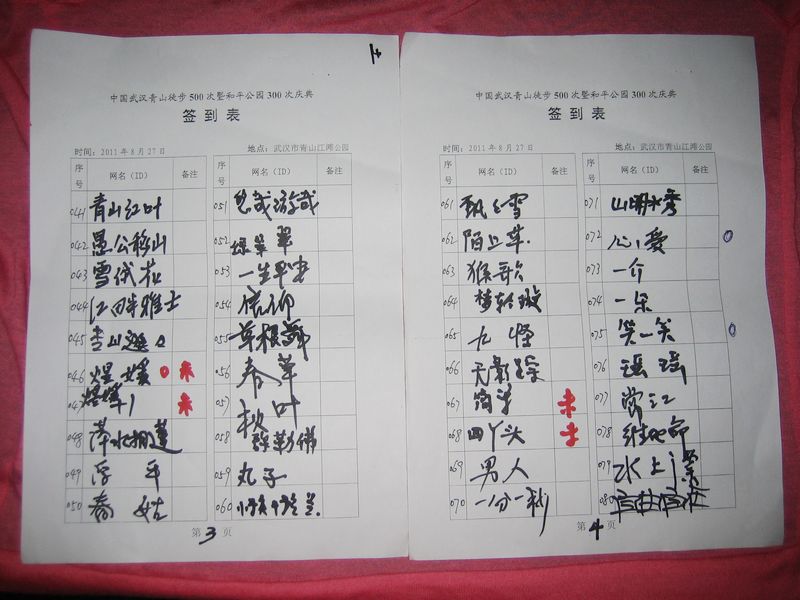 中国武汉青山徒步500次暨和平公园300次庆典
签到表
时间：2011年8月27日 地点：武汉市青山江滩公园
序号 网名（ID） 备注 序号 网名（ID） 备注
041 青山红叶 051
042 愚公移山 052 绿翠翠
043 雪绒花 053 一生平安
044 江畔雅士 054 信仰
045 055 草根
046 煜媛 未 056 春草
047 未 057 秋叶
048 萍水相逢 058 弥勒佛
049 浮平 059 丸子
050 春姑 060
第3页
中国武汉青山徒步500次暨和平公园300次庆典
签到表
时间：2011年8月27日 地点：武汉市青山江滩公园
序号 网名（ID） 备注 序号 网名（ID） 备注
061 飘飞雪 071 山明水秀
062 陌上草 072 心心爱
063 猴哥 073 一介
064 梦轻旋 074 一朵
065 九怪 075 笑一笑
066 无影踪 076 瑶瑶
067 简单 未 077 常江
068 四丫头 未 078
069 男人 079 水上漂
070 一分一秒 080
第4页